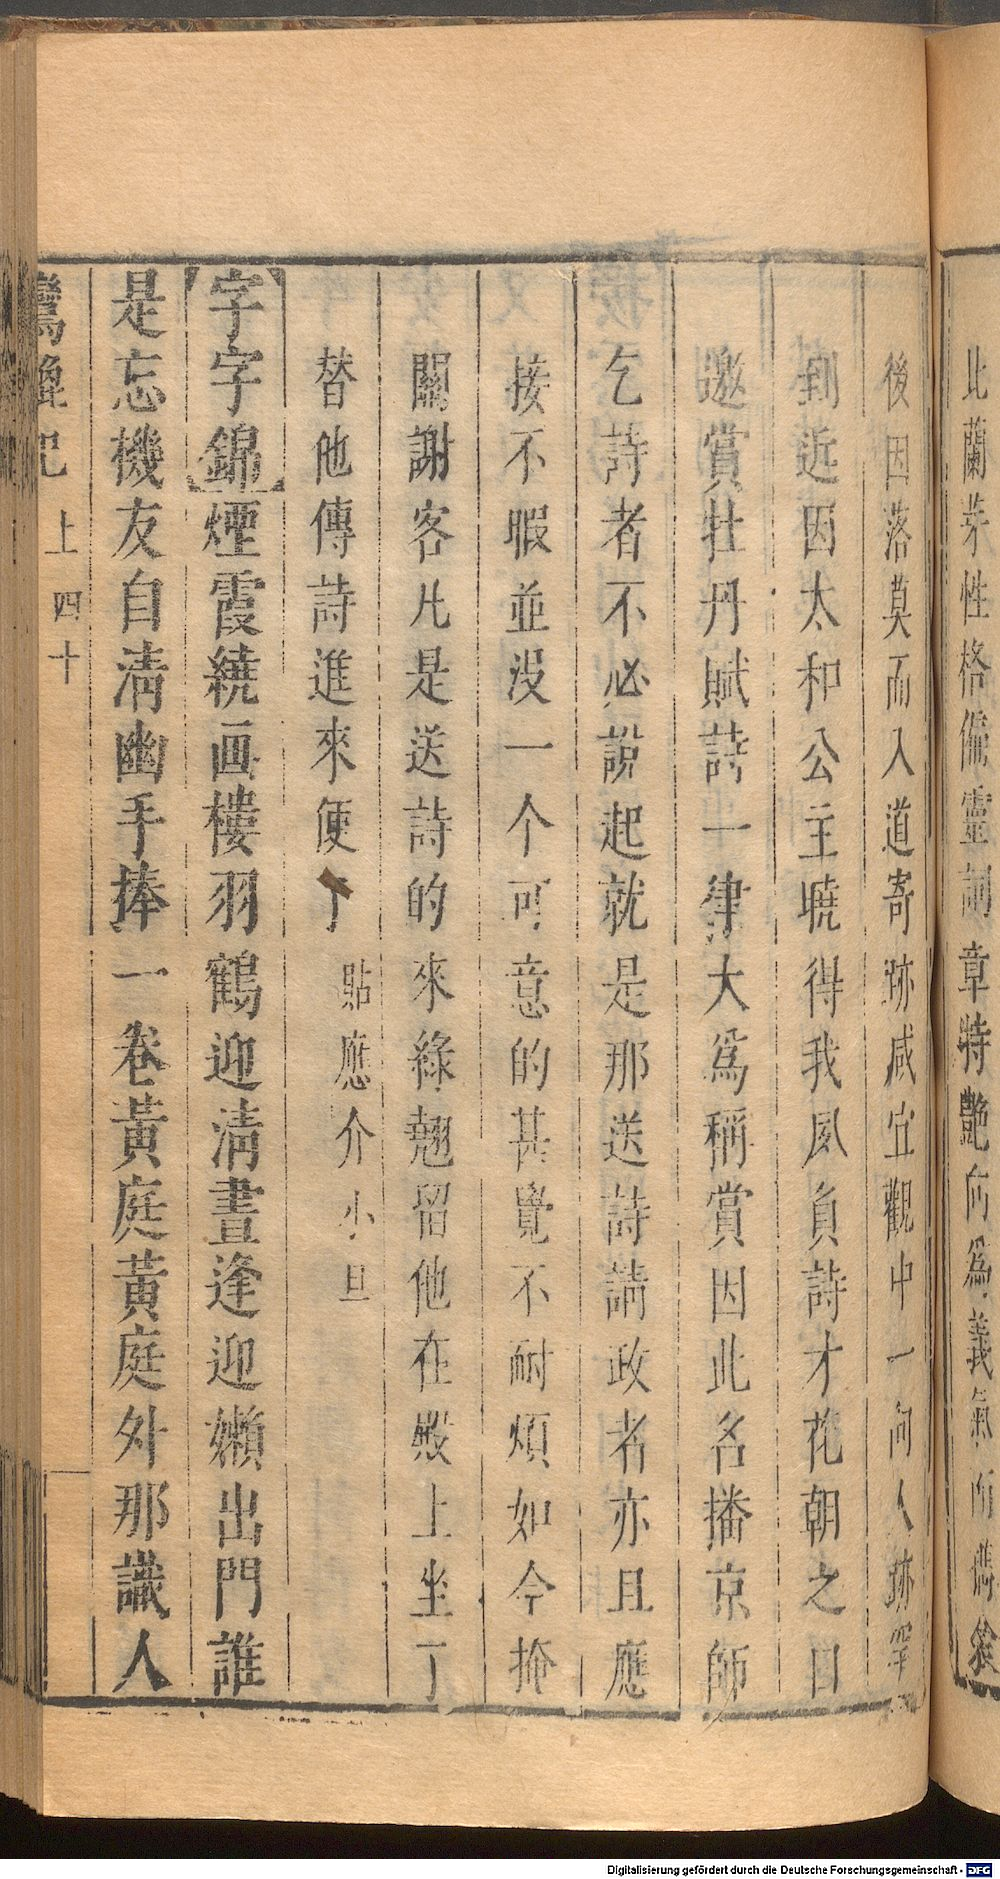 此蘭芽性格偏靈詞章特艷向為義氣而
後因落莫而入道寄跡咸宜觀中一向人跡罕
到近因太和公主曉得我夙負詩才花朝之日
邀賞牡丹賦詩一律大為稱賞因此名播京師
乞詩者不必說起就是那送詩請政者亦且應
接不暇並没一个可意的甚覺不耐煩如今掩
關謝客凢是送詩的來綠翹留他在殿上坐了
替他傳詩進來便了 貼應介 小旦
字字錦煙霞繞画樓羽鶴迎清晝逢迎嬾出門誰
是忘機友自清幽手捧一卷黃庭黃庭外那識人
鸞鎞記 上 四十
Digitalisierung gefördert durch die Deutsche Forschungsgemeinschaft - DFG